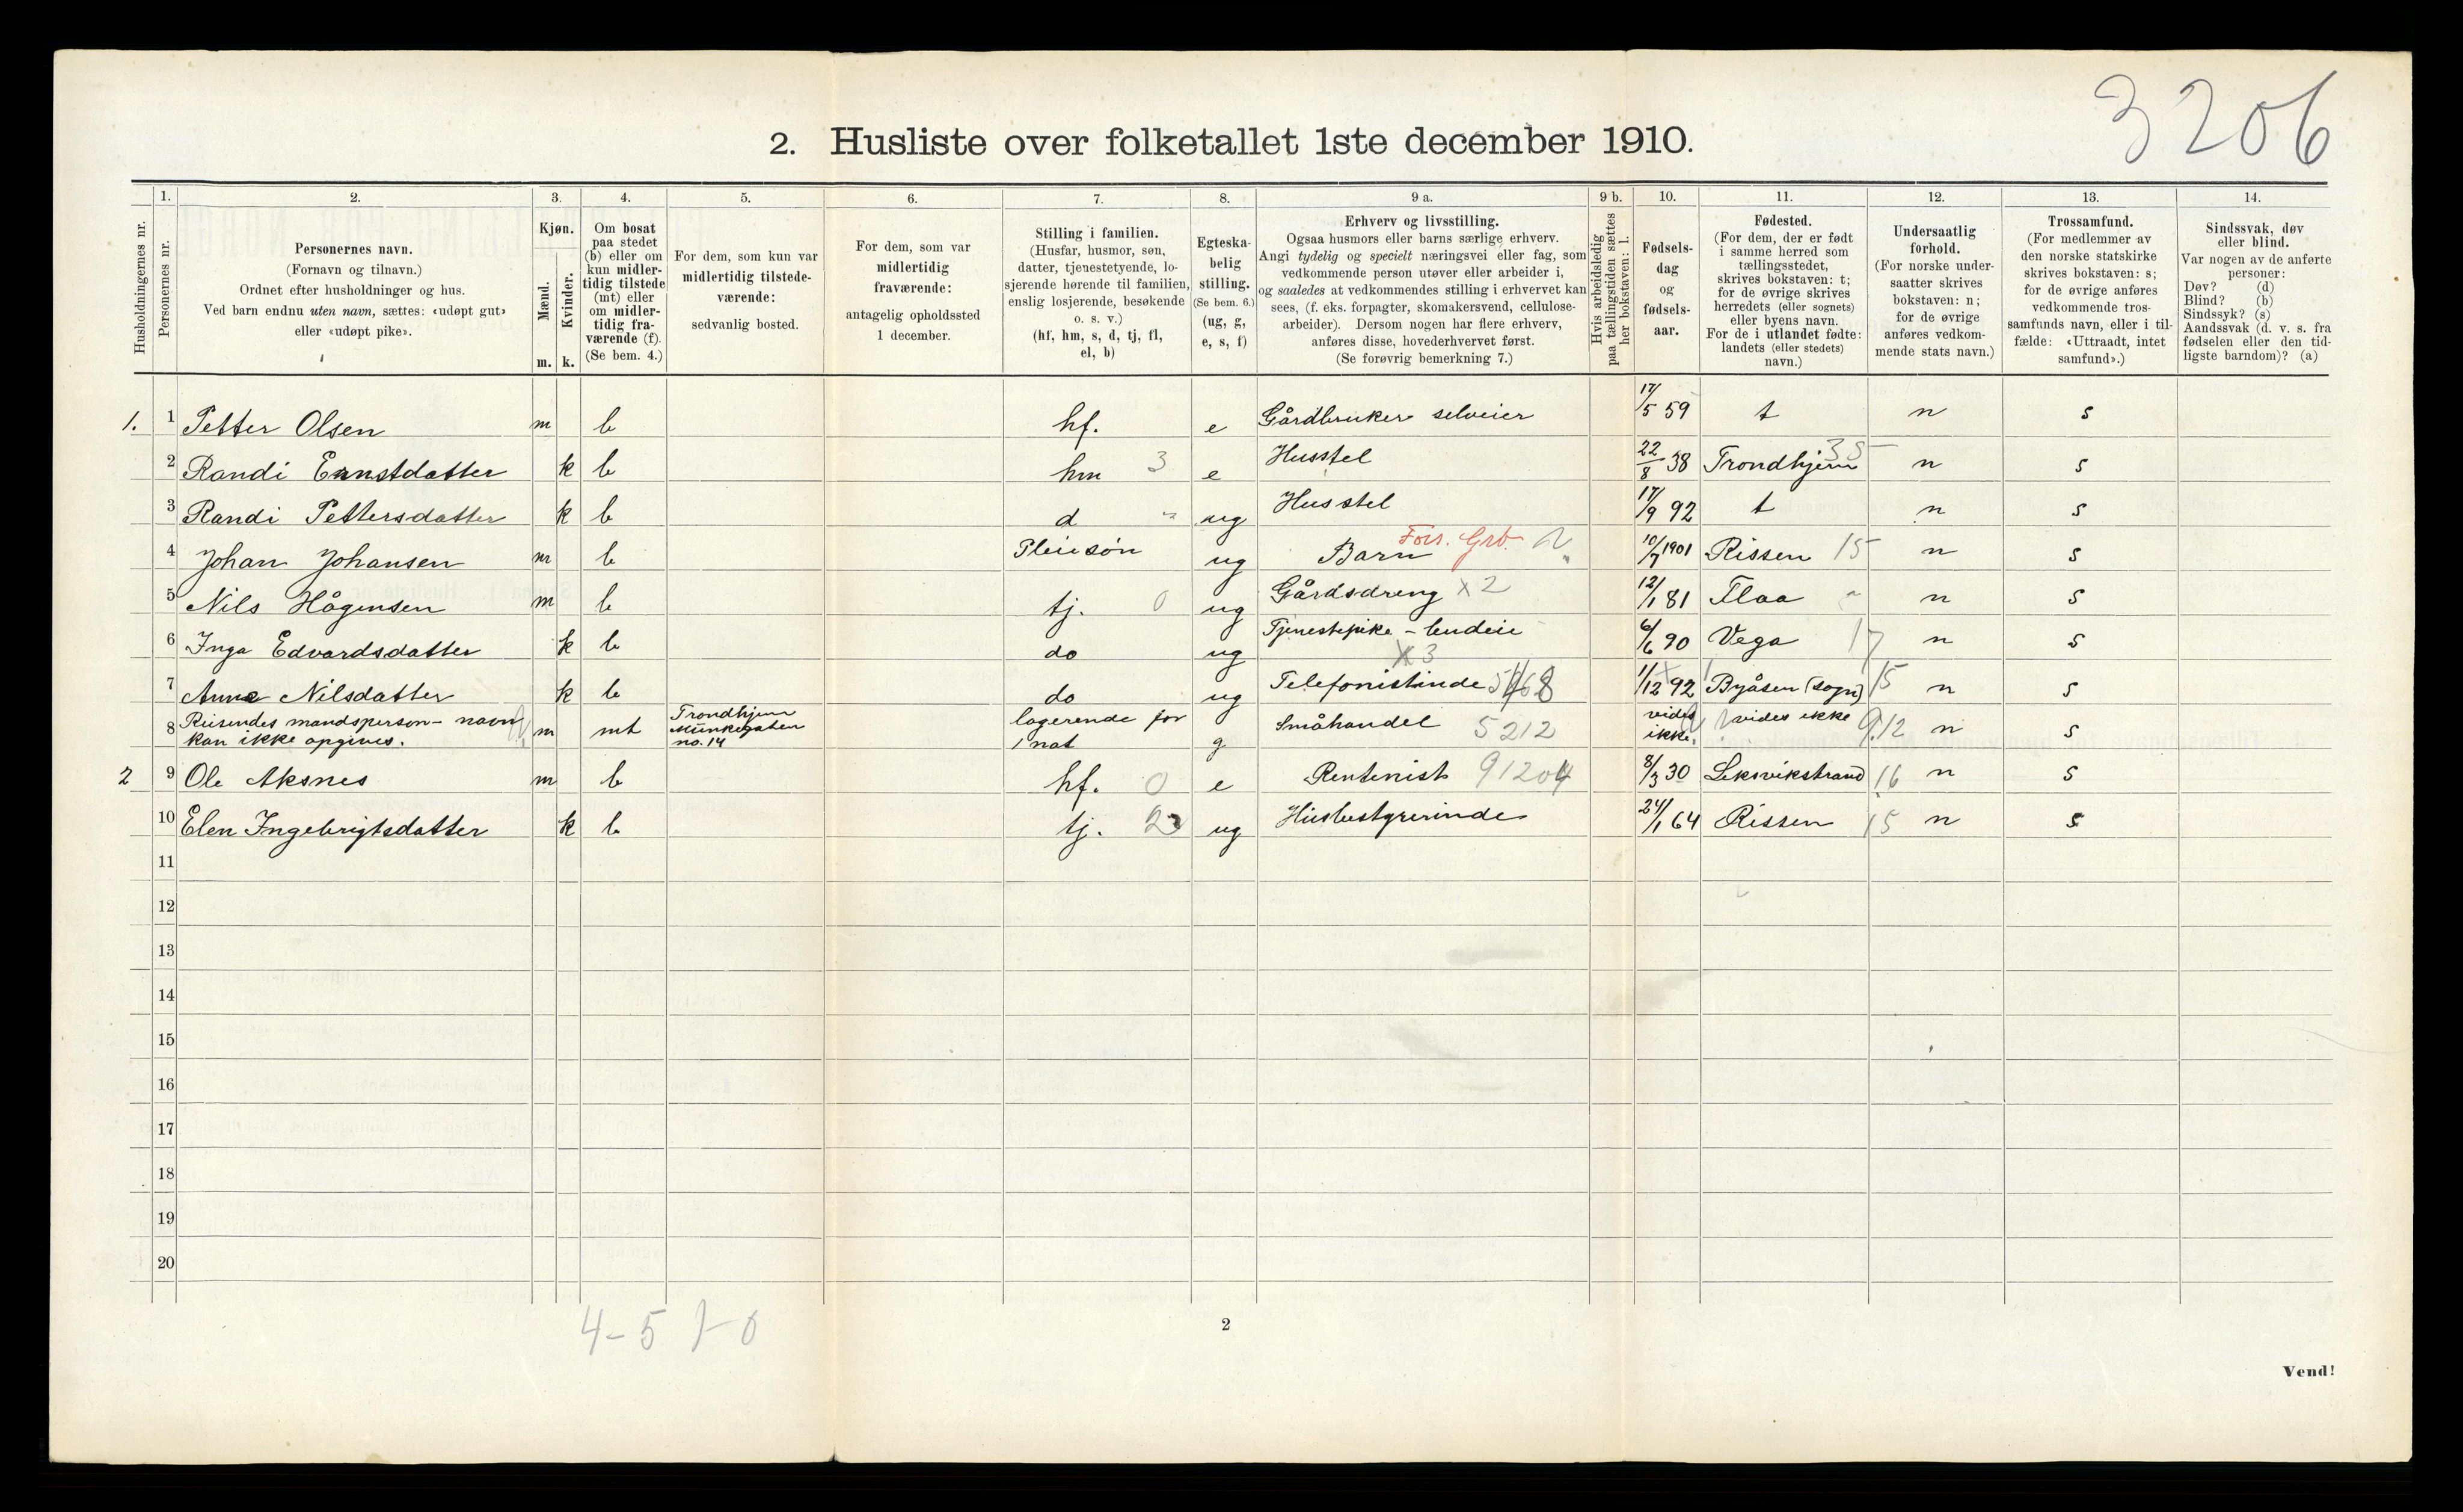 3206
2. Husliste over folketallet 1ste december 1910.
1. 2. 3. 4. 5. 6. 7. 8. 9 a. 9 b. 10. 11. 12. 13. 14.
Husholdningernes nr.
Personernes nr.
Personernes navn.
(Fornavn og tilnavn.)
Ordnet efter husholdninger og hus.
Ved barn endnu uten navn, sættes: «udøpt gut»
eller «udøpt pike».
Kjøn.
Mænd.
Kvinder.
m. k.
Om bosat
paa stedet
(b) eller om
kun midler-
tidig tilstede
(mt) eller
om midler-
tidig fra-
værende (f).
(Se bem. 4.)
For dem, som kun var
midlertidig tilstede-
værende:
sedvanlig bosted.
For dem, som var
midlertidig
fraværende:
antagelig opholdssted
1 december.
Stilling i familien.
(Husfar, husmor, søn,
datter, tjenestetyende, lo-
sjerende hørende til familien,
enslig losjerende, besøkende
o. s. v.)
(hf, hm, s, d, tj, fl,
el, b)
Egteska-
belig
stilling.
(Se bem. 6.)
(ug, g,
e, s, f)
Erhverv og livsstilling.
Ogsaa husmors eller barns særlige erhverv.
Angi tydelig og specielt næringsvei eller fag, som
vedkommende person utøver eller arbeider i,
og saaledes at vedkommendes stilling i erhvervet kan
sees, (f. eks. forpagter, skomakersvend, cellulose-
arbeider). Dersom nogen har flere erhverv,
anføres disse, hovederhvervet først.
(Se forøvrig bemerkning 7.)
Hvis arbeidsledig
paa tællingstiden sættes
her bokstaven: l.
Fødsels-
dag
og
fødsels-
aar.
Fødested.
(For dem, der er født
i samme herred som
tællingsstedet,
skrives bokstaven: t;
for de øvrige skrives
herredets (eller sognets)
eller byens navn.
For de i utlandet fødte:
landets (eller stedets)
navn.)
Undersaatlig
forhold.
(For norske under-
saatter skrives
bokstaven: n;
for de øvrige
anføres vedkom-
mende stats navn.)
Trossamfund.
(For medlemmer av
den norske statskirke
skrives bokstaven: s;
for de øvrige anføres
vedkommende tros-
samfunds navn, eller i til-
fælde: «Uttraadt, intet
samfund».)
Sindssvak, døv
eller blind.
Var nogen av de anførte
personer:
Døv? (d)
Blind? (b)
Sindssyk? (s)
Aandssvak (d. v. s. fra
fødselen eller den tid-
ligste barndom)? (a)
1. 1 Petter Olsen m b hf. e Gårdbruker selveier 17/5 59 t n s
2 Randi Ernstdatter k b hm 3 e Husstel 22/8 38 Trondhjem 35 n s
3 Randi Pettersdatter k b d ug Husstel 17/9 92 t n s
4 Johan Johansen m b Pleiesøn ug Barn Fors. Grb. 10/7 1901 Rissen 15 n s
5 Nils Hågensen m b tj. 0 ug Gårdsdreng x 2 12/1 81 Flaa n s
6 Inga Edvardsdatter k b do ug Tjenestepike - budeie x 3 6/6 90 Vega 17 n s
7 Anna Nilsdatter k b do ug Telefonistinde 1/12 92 Byåsen (sogn) 15 n s
8 Reisendes mandsperson - navn
kan ikke opgives. m mt Trondhjem
Munkegaten
no. 14 logerende for
1 nat g Småhandel 5212 vides
ikke. vides ikke 9.12 n s
2 9 Ole Aksnes m b hf. 0 e Rentenist 91204 8/3 30 Leksvikstrand 16 n s
10 Elen Ingebrigtsdatter k b tj. ug Husbestyrerinde 24/1 64 Rissen 15 n s
11
12
13
14
15
16
17
18
19
20
4-5 1-0
2
Vend!